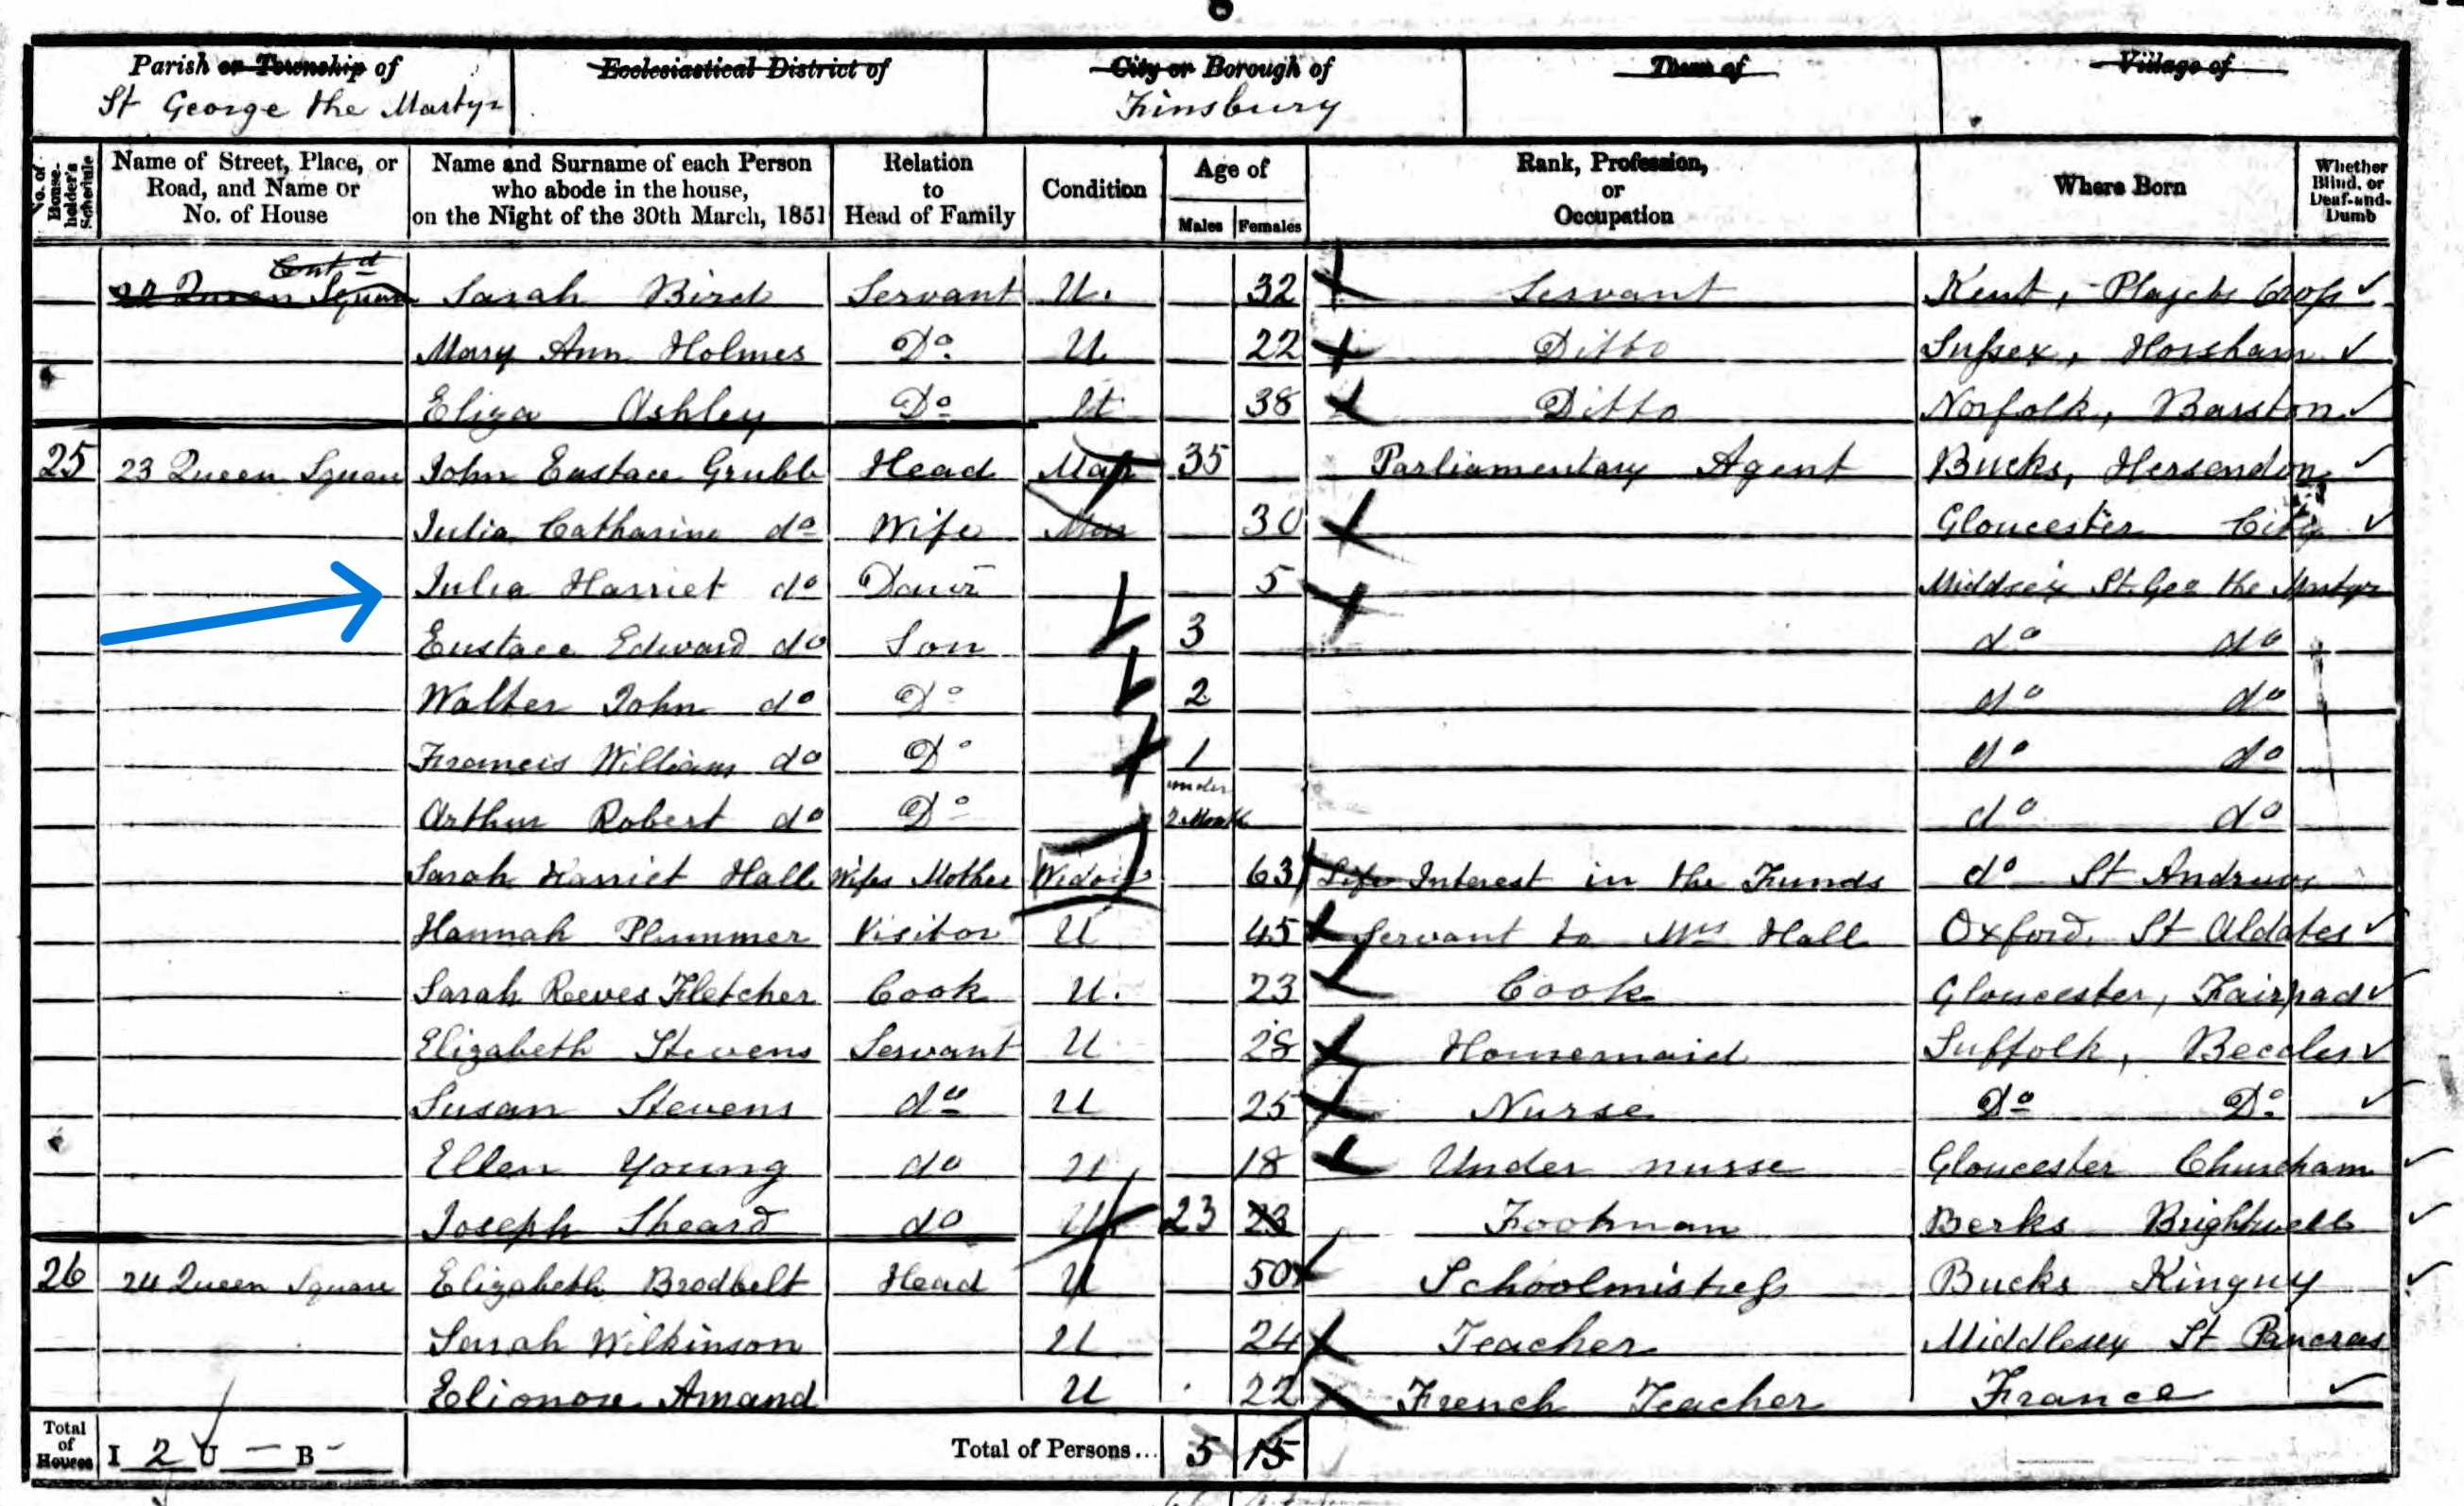 Parish or Township of | Ecclesiastical District of | City or Borough of | Town of | Village of
St George the Martyr | Finsbury
No. of House-holder's Schedule | Name of Street, Place, or Road, and Name or No. of House | Name and Surname of each Person who abode in the house, on the Night of the 30th March, 1851 | Relation to Head of Family | Condition | Age of Males Females | Rank, Profession, or Occupation | Where Born | Whether Blind, or Deaf-and-Dumb
Cont d
22 Queen Square Sarah Bird Servant U. 32 Servant Kent,
Mary Ann Holmes Do. U. 22 Ditto Sussex, Horsham
Eliza Ashley Do U 38 Ditto Norfolk, Barston
25 23 Queen Square John Eustace Grubb Head Mar 35 Parliamentary Agent Bucks, Hersendon
Julia Catharine do Wife Mar 30 Gloucester City
Julia Harriet do Daur 5 Middsex St. Geo the Martyr
Eustace Edward do Son 3 do do
Walter John do Do 2 do do
Francis William do Do 1 do do
under
Arthur Robert do Do 2 Month do do
Sarah Harriet Hall Wifes Mother Widow 63 Life Interest in the Funds do St Andrews
Hannah Plummer Visitor U 45 Servant to Mrs Hall Oxford, St Aldates
Sarah Reeves Fletcher Cook U. 23 Cook Gloucester,
Elizabeth Stevens Servant U 28 Housemaid Suffolk, Beccles
Susan Stevens do U 25 Nurse Do Do.
Ellen Young do U 18 Under nurse Gloucester Churcham
Joseph Sheard do U 23 23 Footman Berks Brightwell
26 24 Queen Square Elizabeth Brodbelt Head U 50 Schoolmistress Bucks Kingsey
Sarah Wilkinson U 24 Teacher Middlesex St Pancras
Elionore Amand U 22 French Teacher France
Total of Houses I 2 U — B - Total of Persons... 5 15